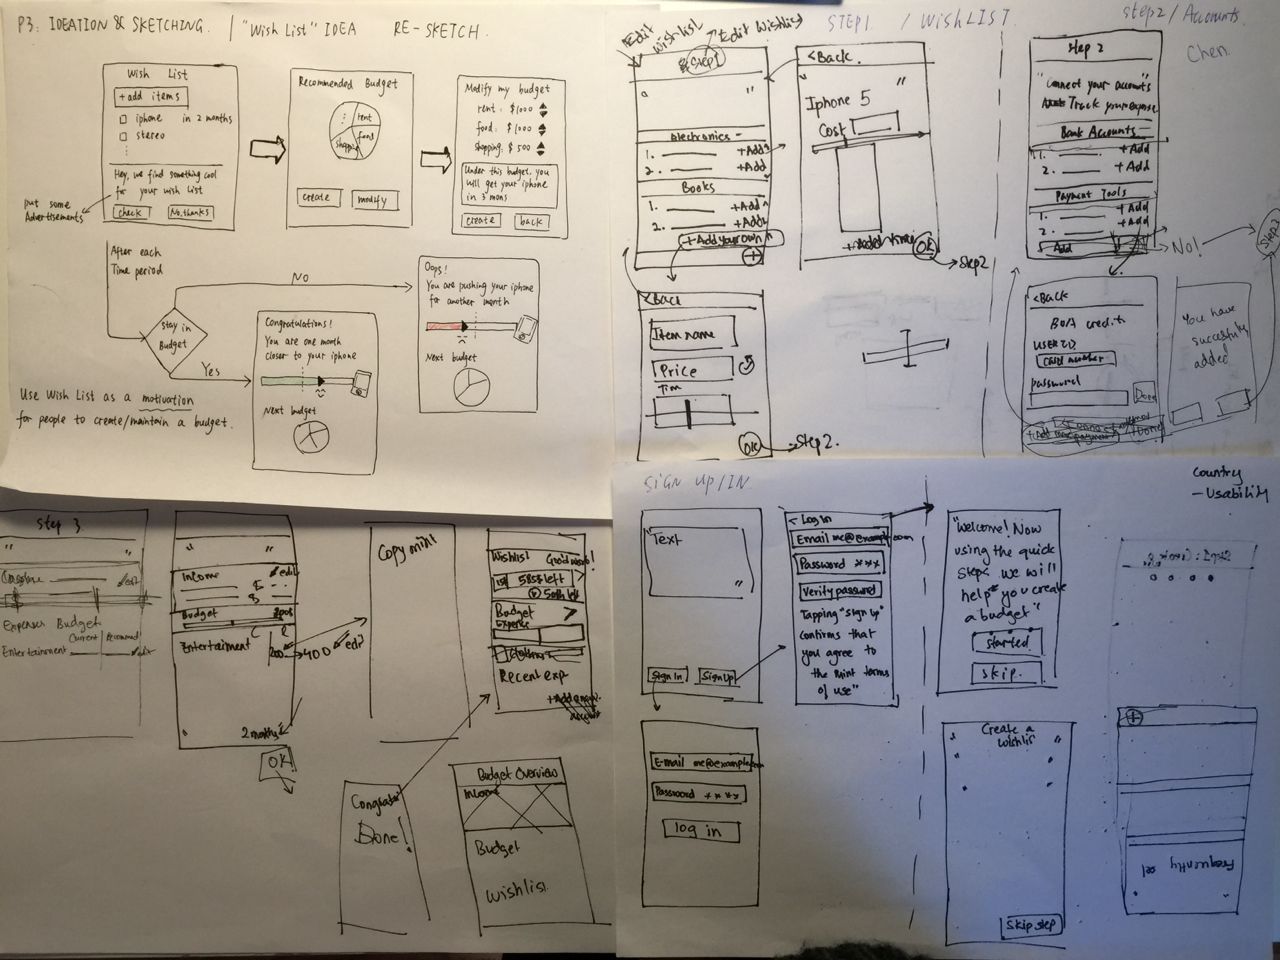 P3: IDEATION & SKETCHING. / "Wish List" IDEA RE-SKETCH.
Wish List
+ add items
iphone in 2 months
stereo
Hey, we find something cool
for your wish List
check
No, thanks
put some
Advertisements
Recommended Budget
rent
food
shopping
create
modify
Modify my budget
rent: $1000
food: $1000
shopping: $500
Under this budget, you
will get your iphone
in 3 mons
create
back
After each
Time period
Stay in
Budget
NO
Yes
Congratulations!
You are one month
closer to your iphone
Next budget
Oops!
You are pushing your iphone
for another month
Next budget
Use Wish List as a motivation
for people to create/maintain a budget.
STEP1 / WISHLIST.
Edit
wish-list
Edit Wishlist
Step 1
" "
Electronics -
1. +Add
2. +Add
Books
1. +Add
2. +Add
+ Add your own
<Back.
" "
Iphone 5
Cost
OK
Step2
<Back
Item name
Price
OK
Step2.
Step2/Accounts.
Chen.
Step 2
"Connect your accounts"
Track your expense
Bank Accounts
1. +Add
2. +Add
Payment Tools
1. +Add
2. +Add
Add
No!
<Back
BOA credit
USER ID
Card number
password
Done
You have
successfully
added
Step 3
" "
edit
Expenses Budget
Current
Entertainment edit
" "
Income edit
$
$
Budget
C R
Entertainment 200 400 edit
2 months
OK
Copy mint
Wishlist Good work!
585$ left
Budget
Expense
Recent exp
Congrats!
Done!
Budget Overview
Income
Budget
Wishlist
SIGN UP/IN
"Text
"
Sign In
Sign Up
< Log In
Email me@example.com
Password ***
Verify password
Tapping "Sign Up"
confirms that
you agree to
the mint terms
of use"
E-mail me@example.com
Password ****
log in
"Welcome! Now
using the quick
steps we will
help you create
a budget"
started
skip.
Country
- Usability
Create a
wishlist
" "
Skip step
Frequently